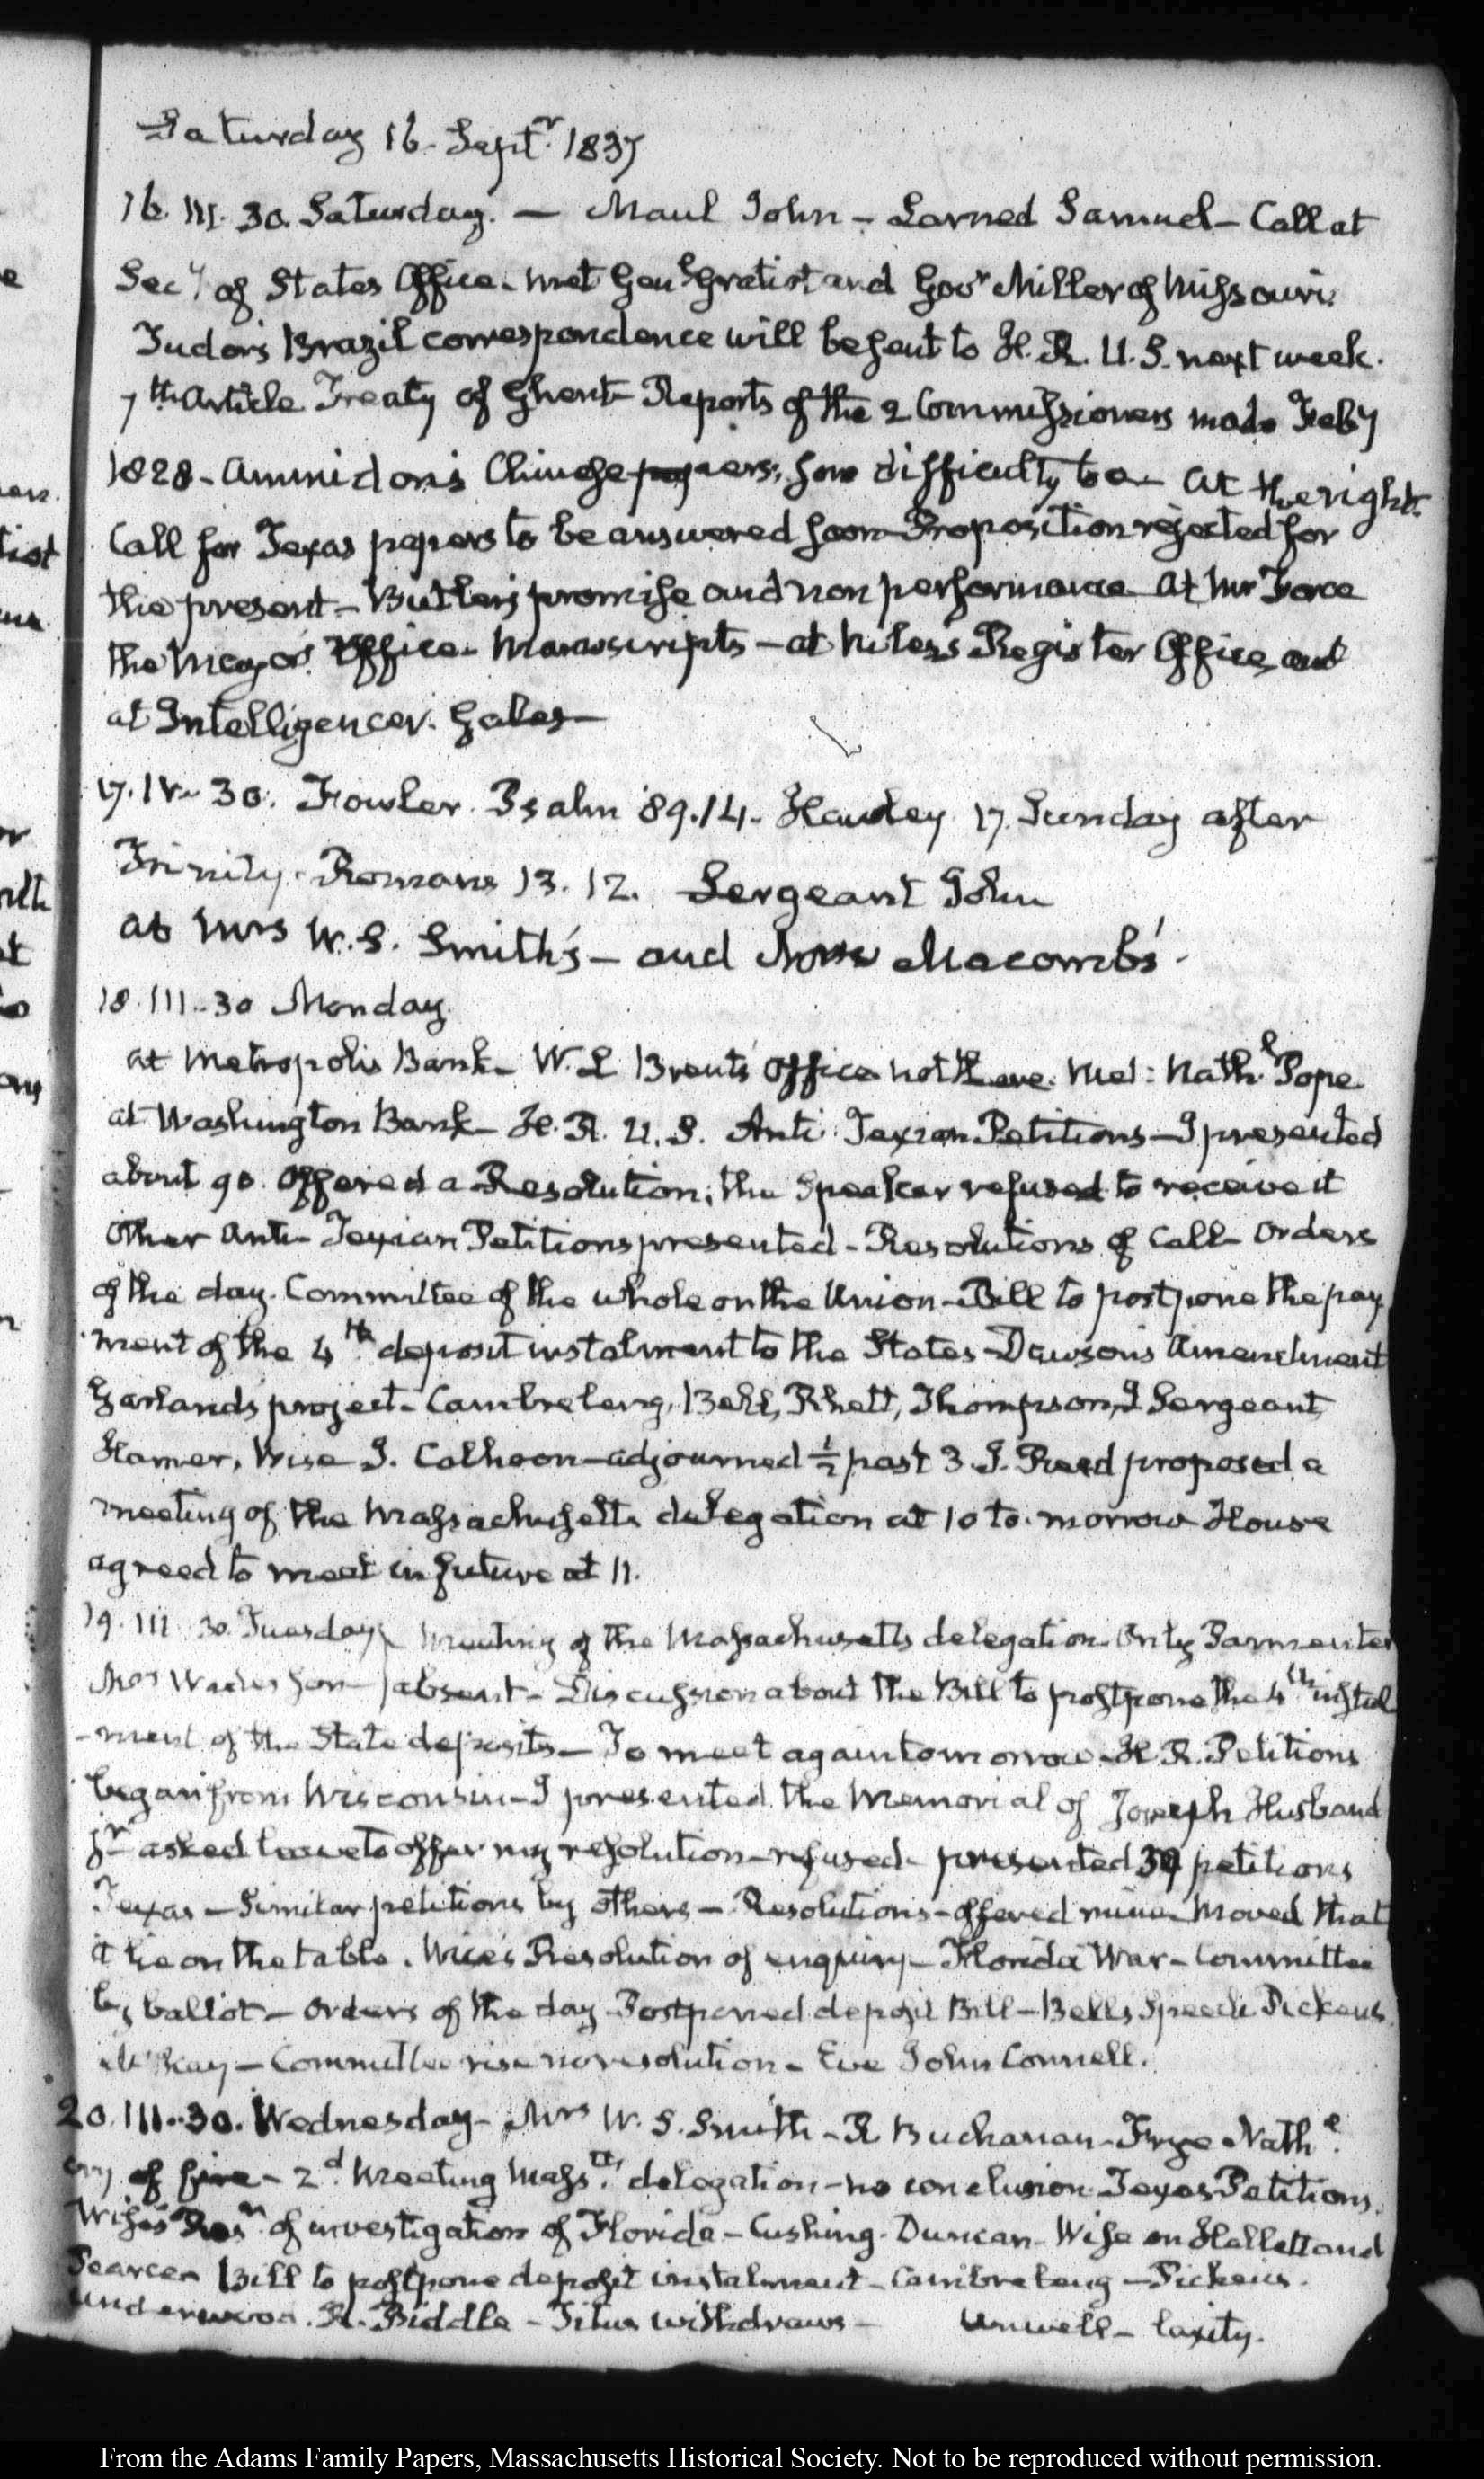 Saturday 16. Septr. 1837
16. III. 30. Saturday. — Maul John - Larned Samuel - Call at
Secy of States Office. met Genl. Gratiot and Govr Miller of Missouri
Tudor's Brazil correspondence will be sent to H. R. U. S. next week.
7th Article Treaty of Ghent - Reports of the 2 Commissioners made Feby
1828 - Ammidon's Chinese papers, some difficulty to a - at the right
Call for Texas papers to be answered soon - Proposition rejected for
the present - Butler's promise and non performance - At Mr Force
the Mayor's Office - Manuscripts - at Niles's Register Office, and
at Intelligencer. Gales —
17. IV. 30. Fowler. Psalm 89.14. Hawley 17. Sunday after
Trinity. Romans 13. 12. Sergeant John
at Mrs W. S. Smith's - and Mrs Macomb's.
18. III. 30 Monday.
at Metropolis Bank - W. L Brent's Office not there. Met: Nathl Pope
at Washington Bank - H. R. U. S. Anti Texian Petitions - I presented
about 90. Offered a Resolution; the Speaker refused to receive it
Other Anti-Texian Petitions presented - Resolutions of Call - Orders
of the day. Committee of the whole on the Union - Bill to postpone the pay
ment of the 4th. deposit instalment to the States - Dawson's Amendment
Garland's project - Cambreleng, Bell, Rhett, Thompson, J Sergeant
Hamer, Wise J. Calhoon - adjourned ½ past 3. J. Reed proposed a
meeting of the Massachusetts delegation at 10 to-morrow House
agreed to meet in future at 11.
19. III. 30. Tuesday, Meeting of the Massachusetts delegation. Only Parmenter
absent - Discussion about the Bill to postpone the 4th instal
-ment of the State deposits - To meet again tomorrow - H. R. Petitions
began from Wisconsin - I presented the Memorial of Joseph Husband
jr asked leave to offer my resolution - refused - presented 39 petitions
Texas - Similar petitions by others - Resolutions - offered mine. Moved that
it lie on the table. Wise's Resolution of enquiry - Florida War - Committee
by ballot - Orders of the day - Postponed deposit Bill - Bell's Speech Pickens
McKay - Committee rise no resolution - Eve John Connell.
20. III. 30. Wednesday - Mrs W. S. Smith - R Buchanan - Frye Nathl.
cry of fire - 2d. Meeting Masstts. delegation - no conclusion. Texas Petitions.
Wise's Resn. of investigation of Florida - Cushing. Duncan - Wise on Hallett and
Pearce - Bill to postpone deposit instalment - Cambreleng - Pickens.
Underwood. R. Biddle - Titus withdraws - Unwell - laxity.
From the Adams Family Papers, Massachusetts Historical Society. Not to be reproduced without permission.